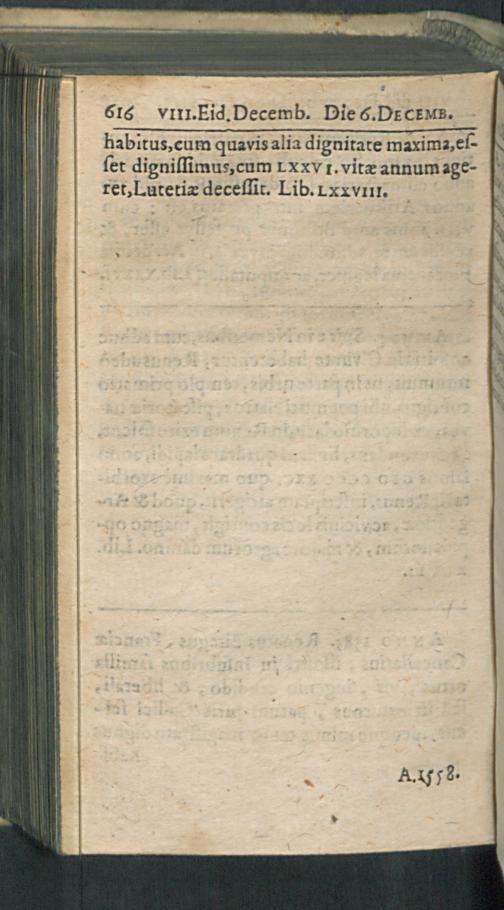 616 VIII.Eid.Decemb. Die 6.DECEMB.
habitus,cum quavis alia dignitate maxima,eſ-
ſet digniſſimus,cum LXXVI. vitæ annum age-
ret,Lutetiæ deceſſit. Lib. LXXVIII.
A.1558.